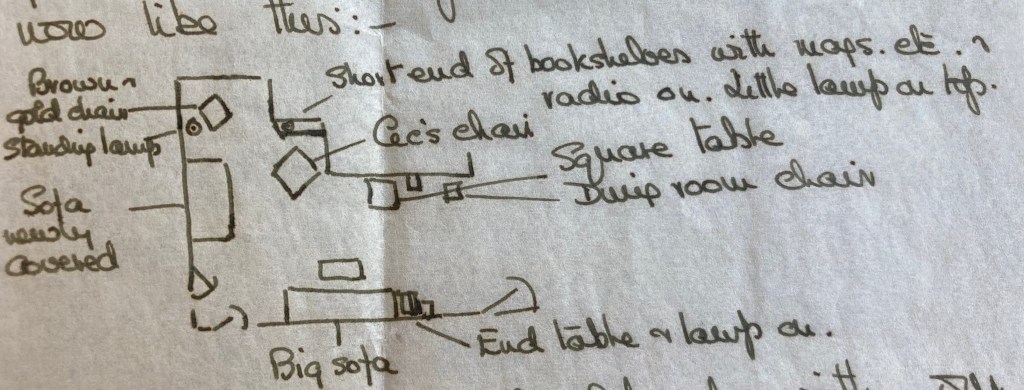 now like this:-
Short end of bookshelves with maps. etc. &
radio on. Little lamp on top.
Brown &
gold chair
Standing lamp
Cec's chair
Square table
Dining room chair
Sofa
newly
covered
End table & lamp on.
Big sofa